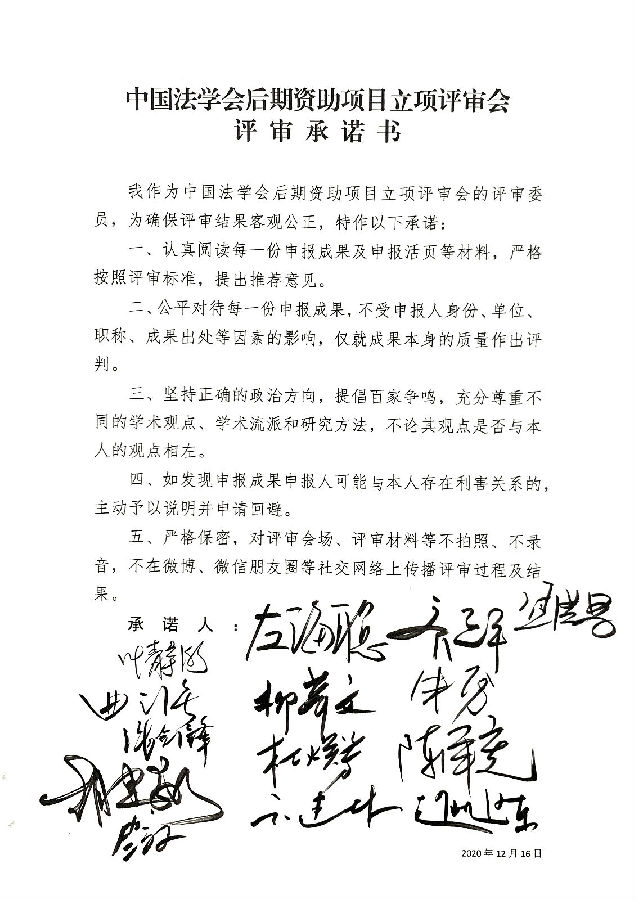 中国法学会后期资助项目立项评审会
评审承诺书
我作为中国法学会后期资助项目立项评审会的评审委
员，为确保评审结果客观公正，特作以下承诺：
一、认真阅读每一份申报成果及申报活页等材料，严格
按照评审标准，提出推荐意见。
二、公平对待每一份申报成果，不受申报人身份、单位、
职称、成果出处等因素的影响，仅就成果本身的质量作出评
判。
三、坚持正确的政治方向，提倡百家争鸣，充分尊重不
同的学术观点、学术流派和研究方法，不论其观点是否与本
人的观点相左。
四、如发现申报成果申报人可能与本人存在利害关系的，
主动予以说明并申请回避。
五、严格保密，对评审会场、评审材料等不拍照、不录
音，不在微博、微信朋友圈等社交网络上传播评审过程及结
果。
承诺人：左海聪
柳华文 朱勇
2020年12月16日